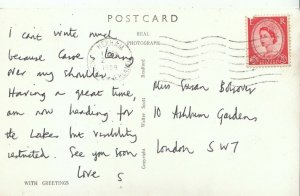 POSTCARD
I can't write much
because Carre is leaning
over my shoulder.
Having a great time,
am now heading for
the Lakes but visibility
restricted. See you soon
Love S
WITH GREETINGS
REAL
PHOTOGRAPH
Copyright Walter Scott Bradford
Miss Susan Bolsover
10 Ashburn Gardens
London SW7